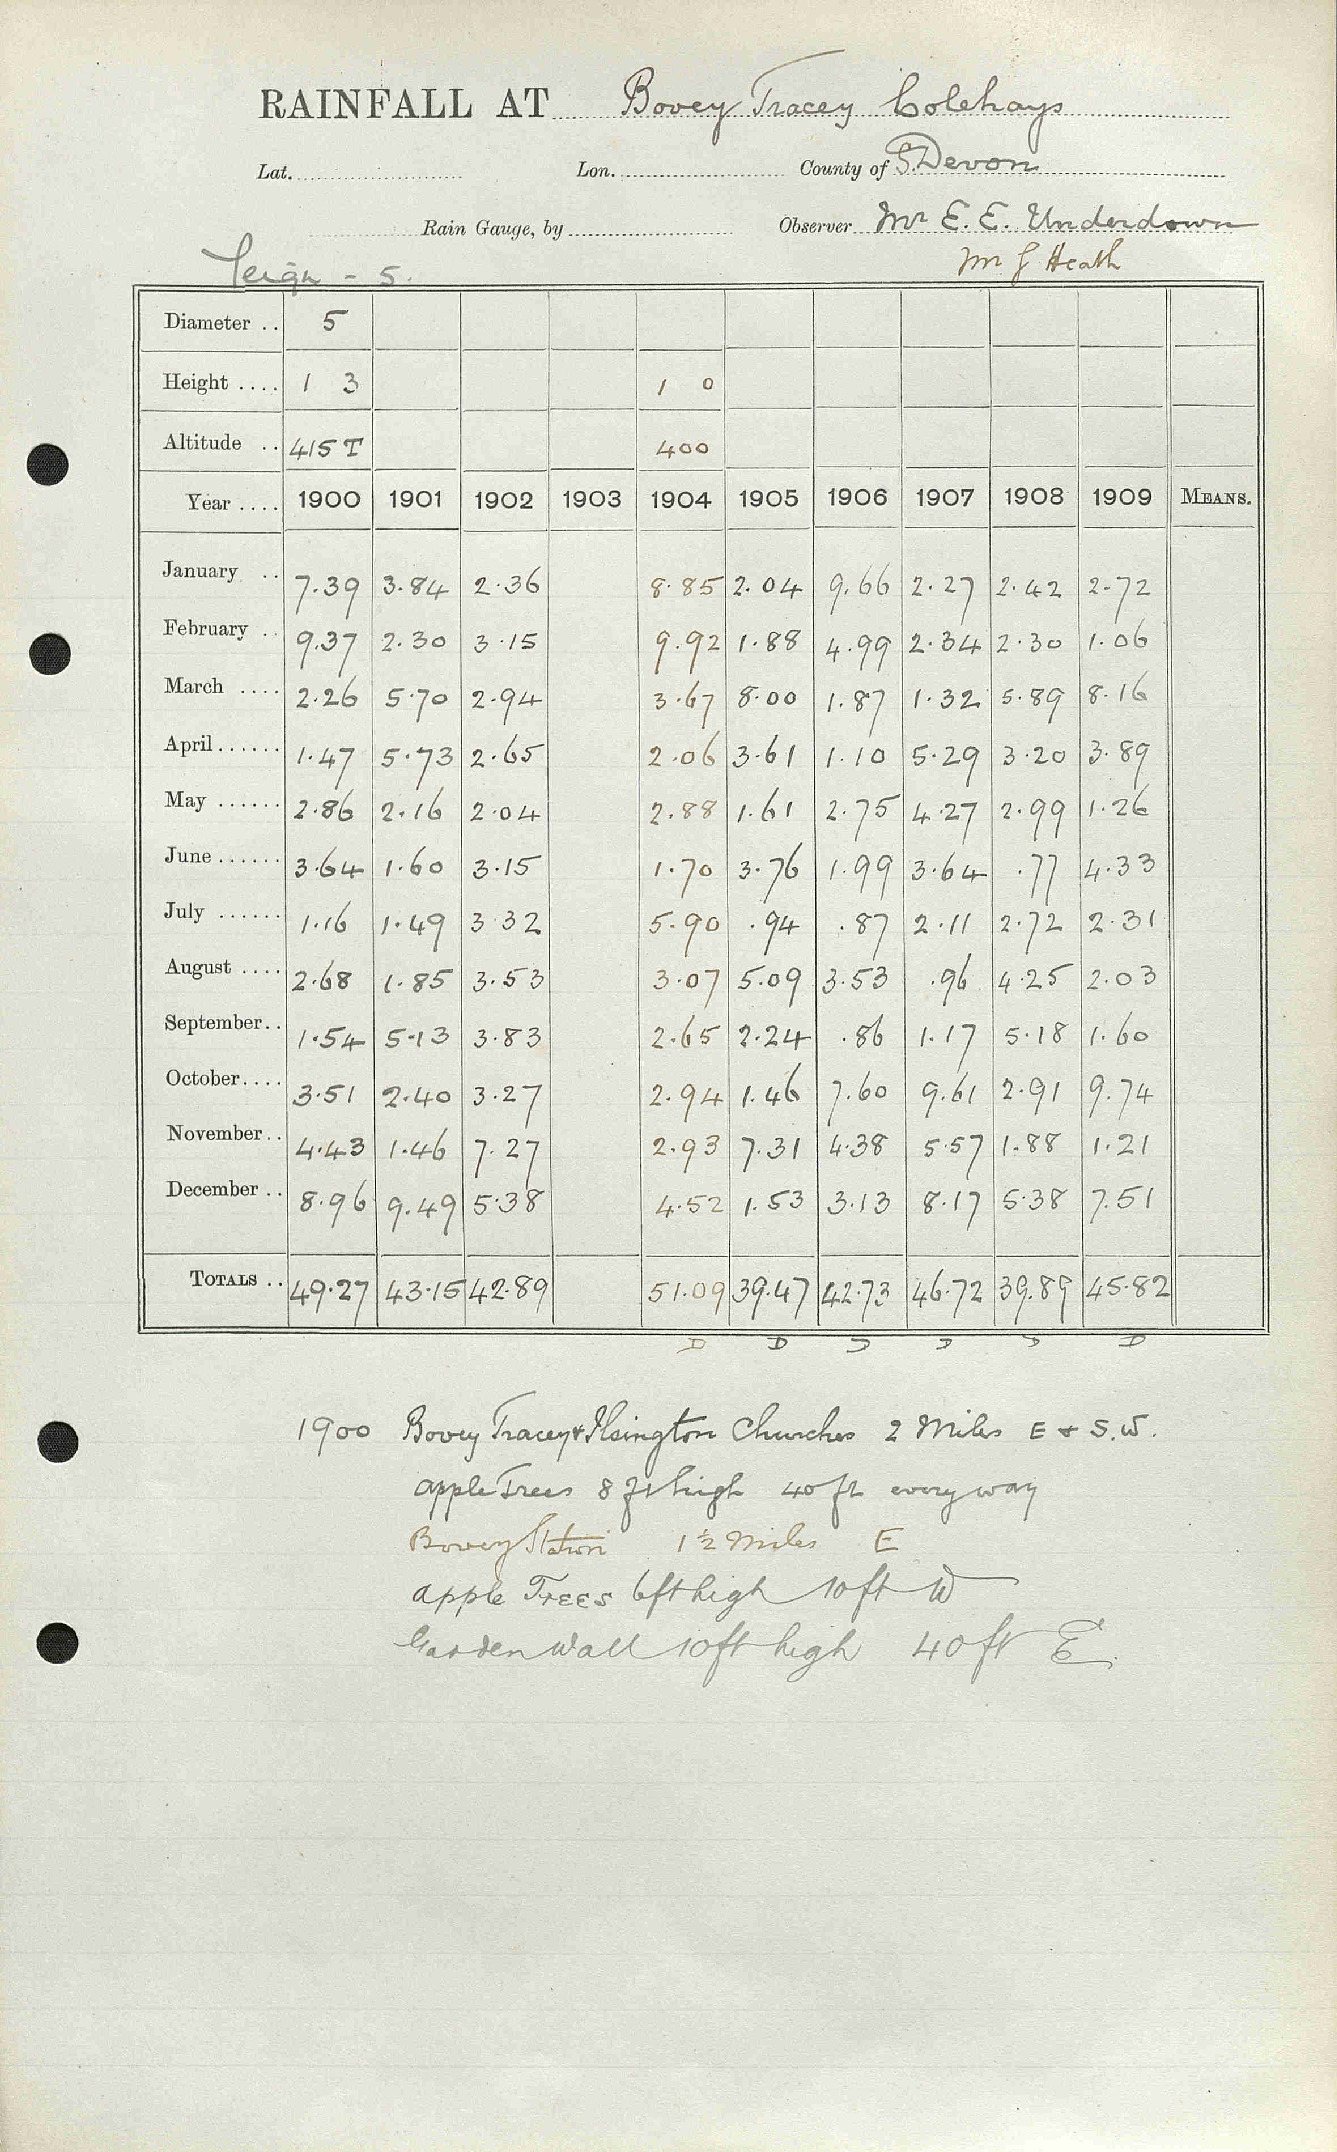 RAINFALL AT Bovey Tracey Colehays
Lat. Lon. County of S. Devon
Rain Gauge, by Observer Mr E. E. Underdown
Teign - 5. Mr G Heath
Diameter .. 5
Height .... 1 3 1 0
Altitude .. 415 T 400
Year .... 1900 1901 1902 1903 1904 1905 1906 1907 1908 1909 MEANS.
January .. 7.39 3.84 2.36 8.85 2.04 9.66 2.27 2.42 2.72
February .. 9.37 2.30 3.15 9.92 1.88 4.99 2.34 2.30 1.06
March .... 2.26 5.70 2.94 3.67 8.00 1.87 1.32 5.89 8.16
April ...... 1.47 5.73 2.65 2.06 3.61 1.10 5.29 3.20 3.89
May ...... 2.86 2.16 2.04 2.88 1.61 2.75 4.27 2.99 1.26
June ...... 3.64 1.60 3.15 1.70 3.76 1.99 3.64 .77 4.33
July ...... 1.16 1.49 3.32 5.90 .94 .87 2.11 2.72 2.31
August .... 2.68 1.85 3.53 3.07 5.09 3.53 .96 4.25 2.03
September .. 1.54 5.13 3.83 2.65 2.24 .86 1.17 5.18 1.60
October .... 3.51 2.40 3.27 2.94 1.46 7.60 9.61 2.91 9.74
November .. 4.43 1.46 7.27 2.93 7.31 4.38 5.57 1.88 1.21
December .. 8.96 9.49 5.38 4.52 1.53 3.13 8.17 5.38 7.51
TOTALS .. 49.27 43.15 42.89 51.09 39.47 42.73 46.72 39.89 45.82
D D D D D D
1900 Bovey Tracey & Ilsington Churches 2 Miles E & S.W.
apple Trees 8 ft high 40 ft every way
Bovey Station 1½ Miles E
apple Trees 6ft high 10ft W
Garden Wall 10ft high 40ft E.